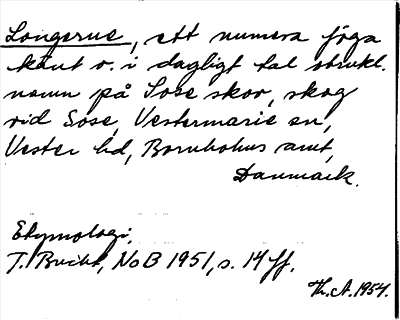 Longerne, ett numera föga
känt o. i dagligt tal obrukl.
namn på Sose skov, skog
vid Sose, Vestermarie sn,
Vester hd, Bornholms amt,
Danmark.
Etymologi,
T. Bucht, NoB 1951, s. 14 ff.
Th. A. 1954.